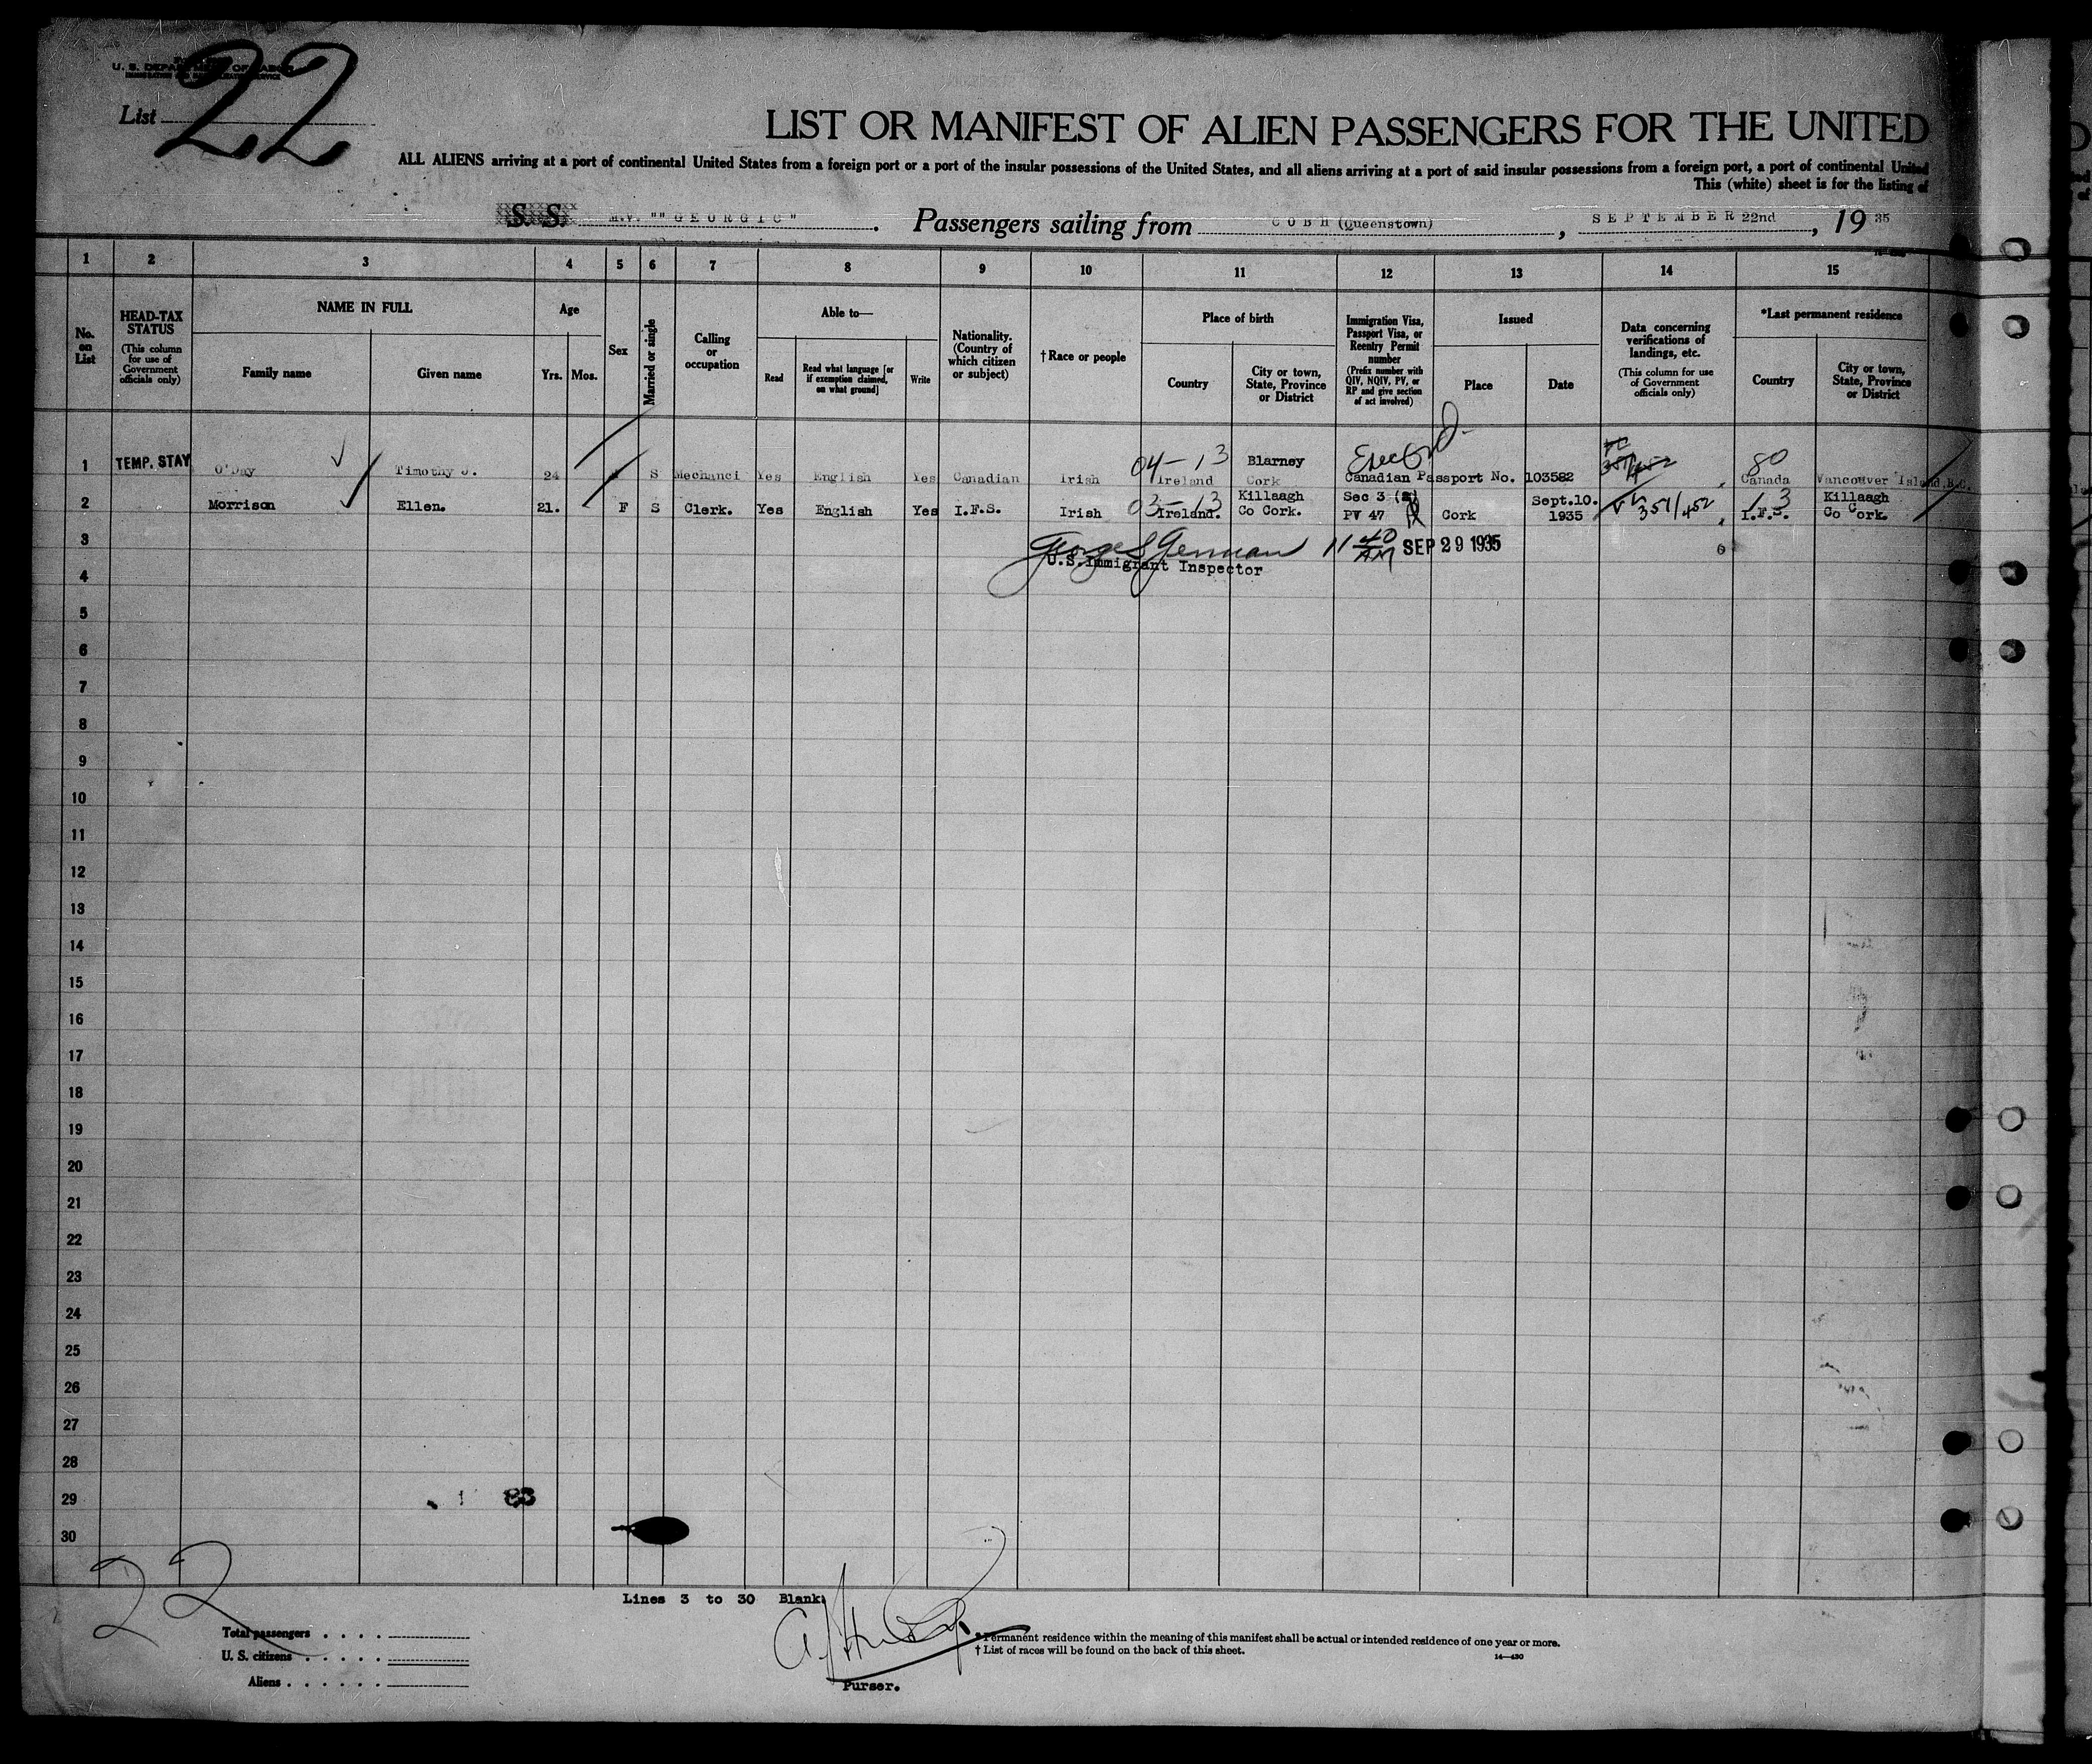 U. S. DEPARTMENT OF LABOR
List 22
LIST OR MANIFEST OF ALIEN PASSENGERS FOR THE UNITED
ALL ALIENS arriving at a port of continental United States from a foreign port or a port of the insular possessions of the United States, and all aliens arriving at a port of said insular possessions from a foreign port, a port of continental United
This (white) sheet is for the listing of
S. S. M.V. ""GEORGIC" . Passengers sailing from COBH (Queenstown) , SEPTEMBER 22nd , 19 35
1 2 3 4 5 6 7 8 9 10 11 12 13 14 15
No. on List
HEAD-TAX STATUS
(This column for use of Government officials only)
NAME IN FULL
Family name Given name
Age
Yrs. Mos.
Sex
Married or single
Calling or occupation
Able to—
Read
Read what language [or if exemption claimed, on what ground]
Write
Nationality. (Country of which citizen or subject)
† Race or people
Place of birth
Country
City or town, State, Province or District
Immigration Visa, Passport Visa, or Reentry Permit number
(Prefix number with QIV, NQIV, PV, or RP and give section of act involved)
Issued
Place Date
Data concerning verifications of landings, etc.
(This column for use of Government officials only)
*Last permanent residence
Country
City or town, State, Province or District
04-13 Blarney 80
1 TEMP. STAY O'Day Timothy J. 24 S Mechanci Yes English Yes Canadian Irish Ireland Cork Canadian Passport No. 103582 Canada Vancouver Island.B.C.
03-13 Killaagh Sec 3 (2) Sept.10. 13 Killaagh
2 Morrison Ellen. 21. F S Clerk. Yes English Yes I.F.S. Irish Ireland. Co Cork. PV 47 Cork 1935 351/452 I.F.S. Co Cork.
3 George S German 11 40 AM SEP 29 1935
U.S.Immigrant Inspector
4
5
6
7
8
9
10
11
12
13
14
15
16
17
18
19
20
21
22
23
24
25
26
27
28
29
30
22
Lines 3 to 30 Blank.
Total passengers . . . .
U. S. citizens . . . . .
Aliens . . . . . .
Purser.
* Permanent residence within the meaning of this manifest shall be actual or intended residence of one year or more.
† List of races will be found on the back of this sheet.
14—430